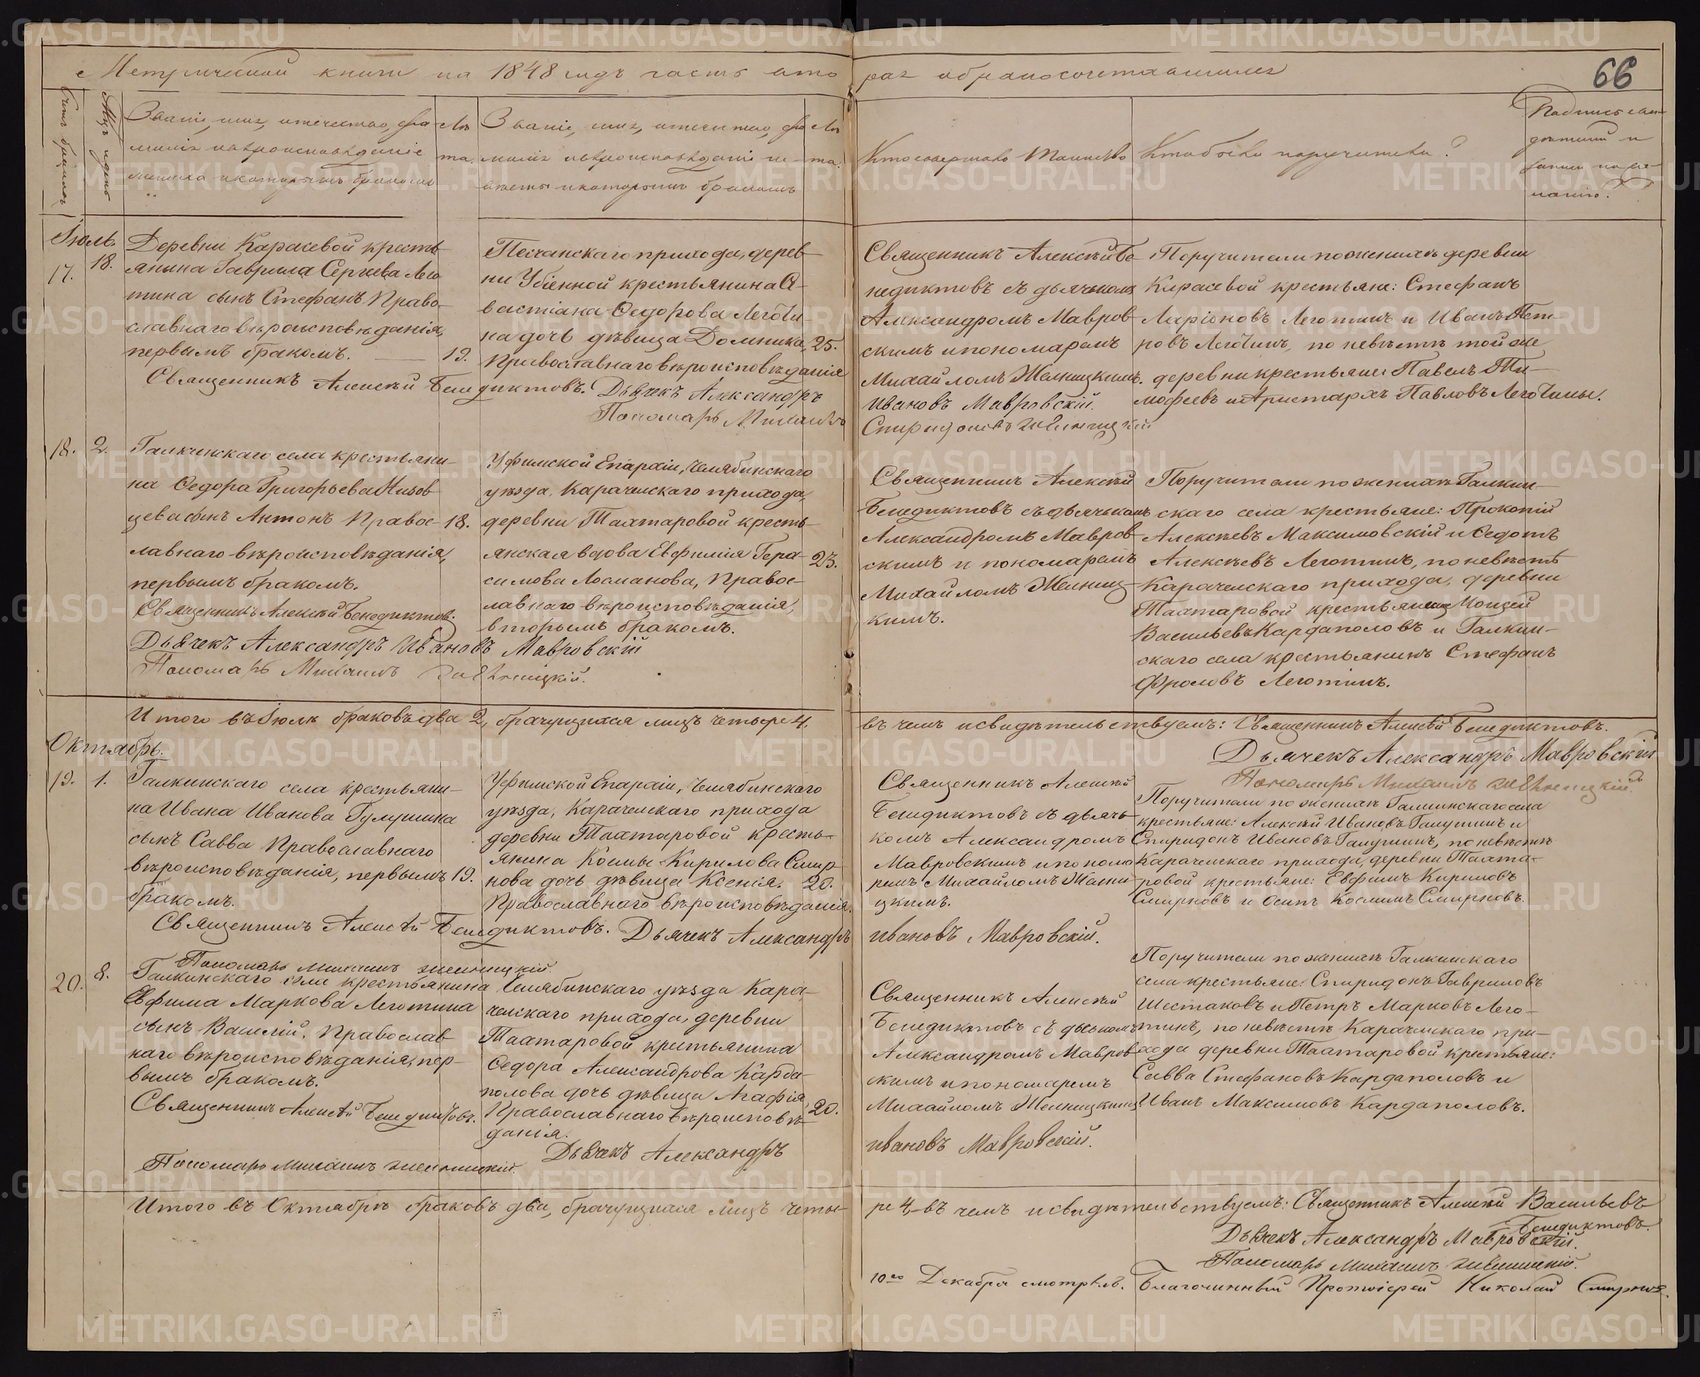 Метрической книги на 1848 годъ часть вторая о бракосочетавшихся
66
Счетъ браковъ
Званіе, имя, отечество, фамилія и вѣроисповѣданіе жениха и которымъ бракомъ
Лѣта.
Званіе, имя, отечество, фамилія и вѣроисповѣданіе невѣсты и которымъ бракомъ
Лѣта.
Кто совершалъ Таинство
Кто были поручители?
Іюль
17.
18.
Деревни Карасевой кресть-
янина Гаврила Сергѣева Лего-
тина сынъ Стефанъ Право-
славнаго вѣроисповѣданія,
первымъ бракомъ.
19.
Песчанскаго прихода, дерев-
ни Убіенной крестьянина Се-
вастіана Ѳедорова Леготи-
на дочь дѣвица Домника,
25.
Православнаго вѣроисповѣданія
Священникъ Алексѣй Бенедиктовъ. Дьячекъ Александръ
Пономарь Михаилъ
Священникъ Алексѣй Бе-
недиктовъ съ дьячкомъ
Александромъ Мавров-
скимъ и пономаремъ
Михайломъ Желницкимъ.
Ивановъ Мавровскій.
Поручители по женихѣ деревни
Карасевой крестьяне: Стефанъ
Ларіоновъ Леготинъ и Иванъ Пет-
ровъ Леготинъ, по невѣстѣ той же
деревни крестьяне: Павелъ Ти-
мофеевъ и Аристархъ Павловъ Леготины.
18.
2.
Галкинскаго села крестьяни-
на Ѳедора Григорьева Низов-
цева сынъ Антонъ Правос-
18.
лавнаго вѣроисповѣданія,
первымъ бракомъ.
Священникъ Алексѣй Бенедиктовъ.
Дьячекъ Александръ Ивановъ Мавровскій
Пономарь Михаилъ
Уфимской Епархіи, Челябинскаго
уѣзда, Карачелскаго прихода,
деревни Таатаровой кресть-
янская вдова Евфимія Гера-
23.
симова Лосманова, Правос-
лавнаго вѣроисповѣданія,
вторымъ бракомъ.
Священникъ Алексѣй
Бенедиктовъ съ дьячкомъ
Александромъ Мавров-
скимъ и пономаремъ
Михайломъ Желниц-
кимъ.
Поручители по женихѣ Галкин-
скаго села крестьяне: Прокопій
Алексѣевъ Максимовскій и Ѳедотъ
Алексѣевъ Леготинъ, по невѣстѣ
Карачелскаго прихода, деревни
Таатаровой крестьянинъ Моисей
Васильевъ Кардаполовъ и Галкин-
скаго села крестьянинъ Стефанъ
Фроловъ Леготинъ.
Итого въ Іюлѣ браковъ два 2, брачущихся лицъ четыре 4.
въ чемъ и свидѣтельствуемъ: Священникъ Алексѣй Бенедиктовъ.
Дьячекъ Александръ Мавровскій
Пономарь Михаилъ
Октябрь.
19.
1.
Галкинскаго села крестьяни-
на Ивана Иванова Галушина
сынъ Савва Православнаго
вѣроисповѣданія, первымъ
19.
бракомъ.
Уфимской Епархіи, Челябинскаго
уѣзда, Карачелскаго прихода
деревни Таатаровой кресть-
янина Космы Кирилова Смир-
нова дочь дѣвица Ксенія.
20.
Православнаго вѣроисповѣданія.
Священникъ Алексѣй Бенедиктовъ. Дьячекъ Александръ
Пономарь Михаилъ
Священникъ Алексѣй
Бенедиктовъ съ дьяч-
комъ Александромъ
Мавровскимъ и понома-
ремъ Михайломъ Желни-
цкимъ.
Ивановъ Мавровскій.
Поручители по женихѣ Галкинскаго села
крестьяне: Алексѣй Ивановъ Галушинъ и
Спиридонъ Ивановъ Галушинъ, по невѣстѣ
Карачелскаго прихода, деревни Таата-
ровой крестьяне: Евфимъ Кириловъ
Смирновъ и Осипъ Косминъ Смирновъ.
20.
8.
Галкинскаго села крестьянина
Ефима Маркова Леготина
сынъ Василій, Православ-
наго вѣроисповѣданія, пер-
вымъ бракомъ.
Священникъ Алексѣй Бенедиктовъ.
Пономарь Михаилъ
Челябинскаго уѣзда Кара-
челскаго прихода, деревни
Таатаровой крестьянина
Ѳедора Александрова Карда-
полова дочь дѣвица Агафія,
20.
Православнаго вѣроисповѣ-
данія.
Дьячекъ Александръ
Священникъ Алексѣй
Бенедиктовъ съ дьячкомъ
Александромъ Мавров-
скимъ и пономаремъ
Михайломъ Желницкимъ
Ивановъ Мавровскій.
Поручители по женихѣ Галкинскаго
села крестьяне: Спиридонъ Гавриловъ
Шестаковъ и Петръ Марковъ Лего-
тинъ, по невѣстѣ Карачелскаго при-
хода деревни Таатаровой крестьяне:
Савва Стефановъ Кардаполовъ и
Иванъ Максимовъ Кардаполовъ.
Итого въ Октябрѣ браковъ два, брачущихся лицъ четы-
ре 4, въ чемъ и свидѣтельствуемъ: Священникъ Алексѣй Васильевъ
Бенедиктовъ.
Дьячекъ Александръ Мавровскій.
Пономарь Михаилъ
10го Декабря смотрѣлъ. Благочинный Протоіерей Николай Смирновъ.
METRIKI.GASO-URAL.RU